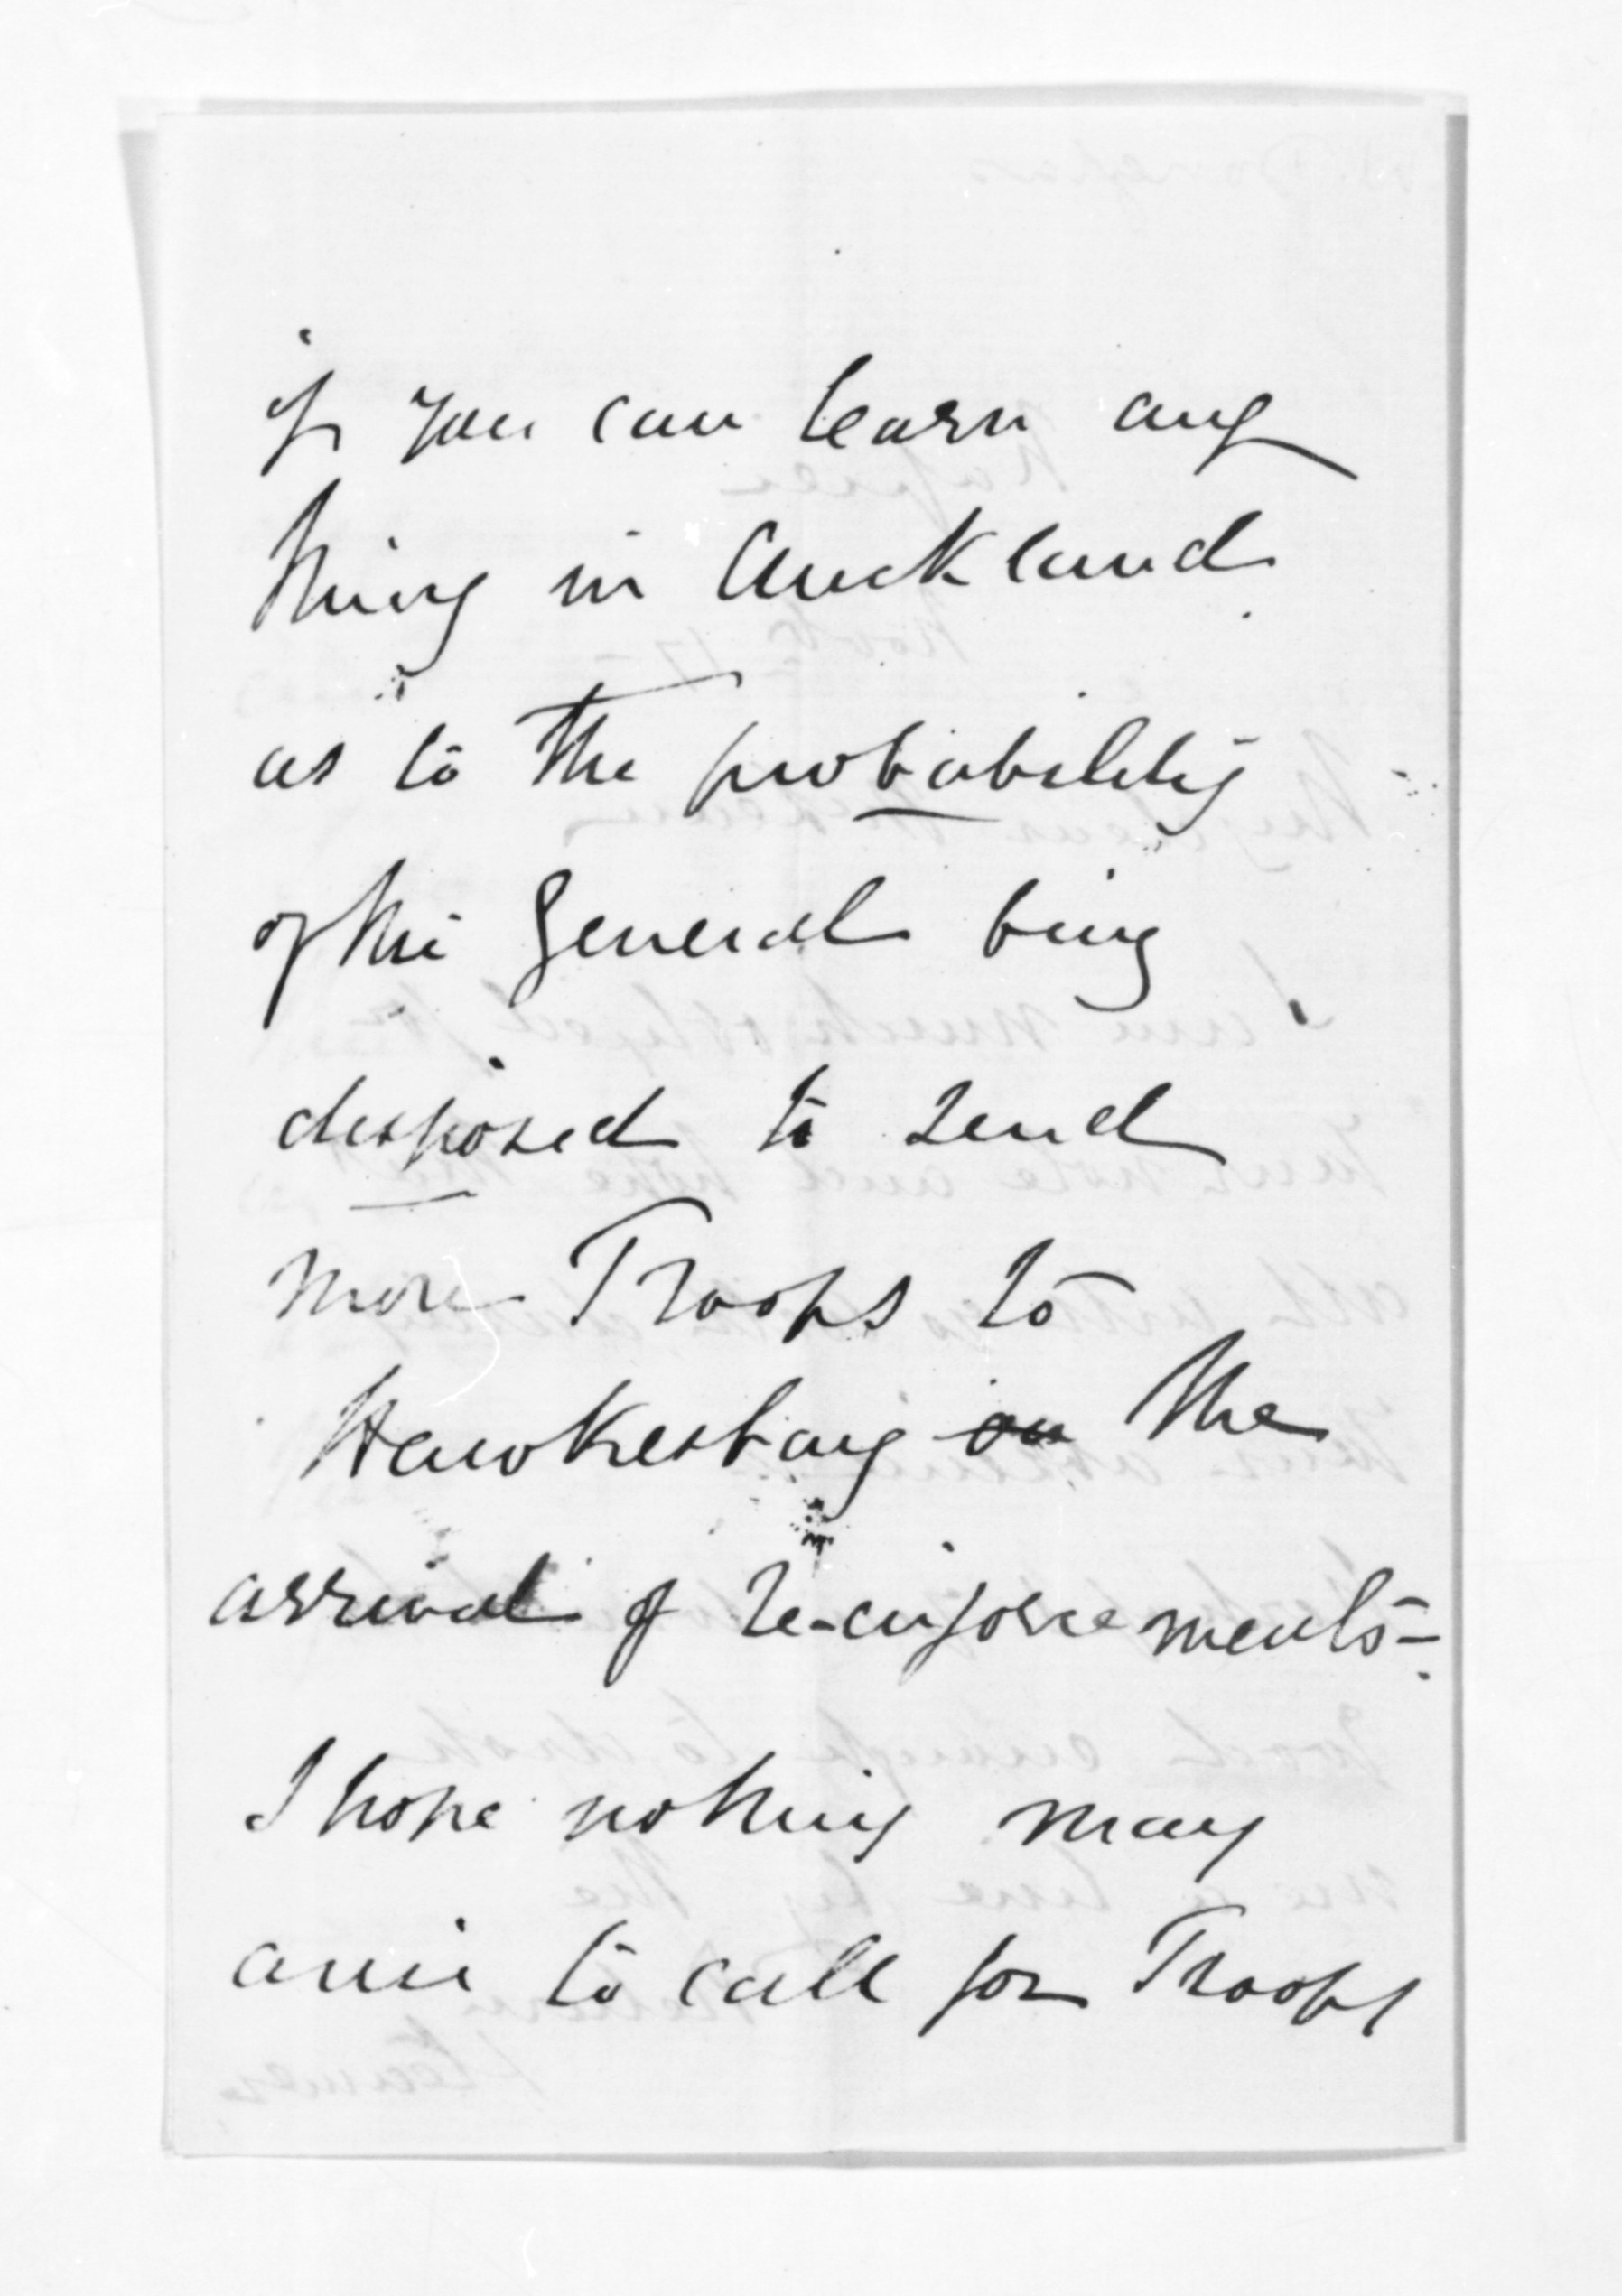 if you can learn any
thing in Auckland
as to the probability
of the General being
disposed to send
more Troops to
Hawkesbay on the
arrival of re-inforcements-
I hope nothing may
arise to call for Troops